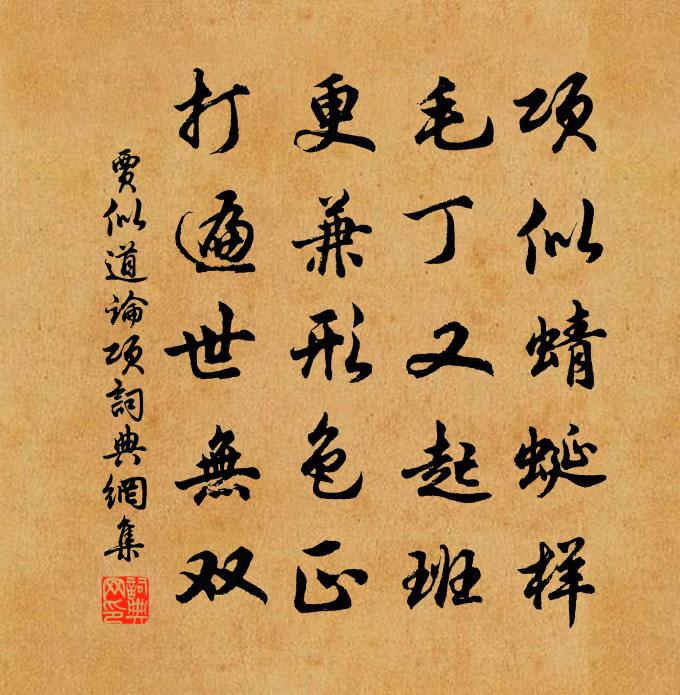 项似蜻蜓样
毛丁又起班
更兼形色正
打遍世無双
賈似道論项詞典網集
詞典网印